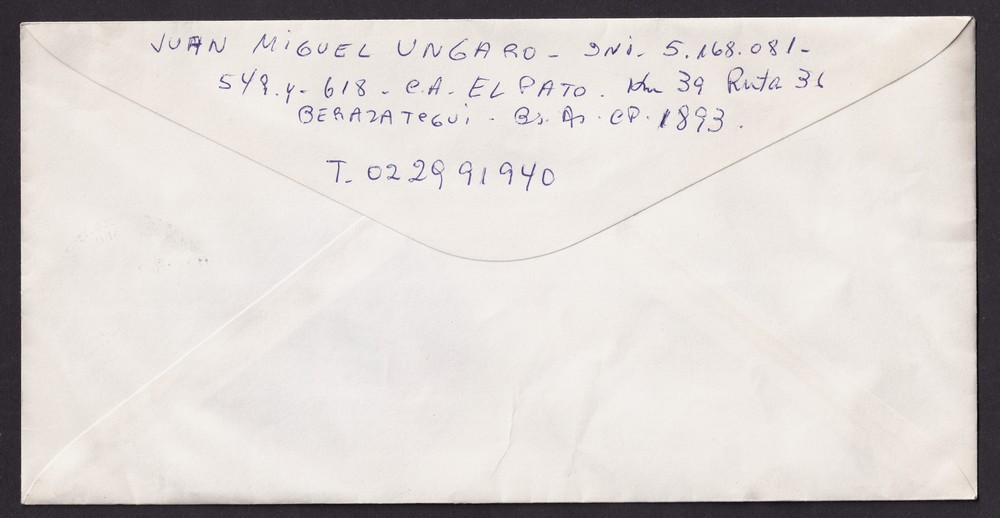 JUAN MIGUEL UNGARO - DNI - 5.168.081 -
549 y - 618 - C.A. EL PATO. Km 39 Ruta 36
BERAZATEGUI. Bs. As. CP. 1893.
T. 0229 91940